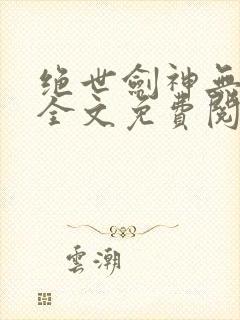 绝世劍神無
全文免費閱
雲潮